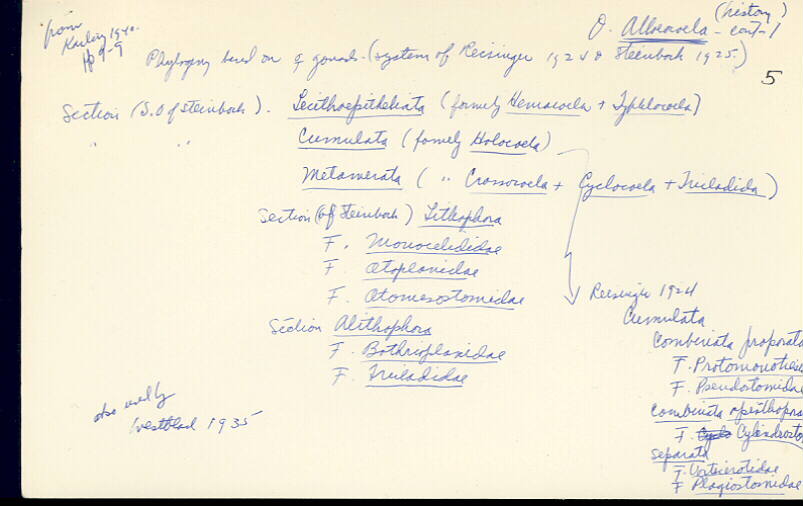 (history)
O. Alloeocoela – cont-1
from
Karling 1940.
pp 9-9
Phylogeny based on ♀ gonads. (system of Reisinger 1924 & Steinbock 1925.)
5
Section (S.O of Steinbock). Lecithoepitheliata (formerly Hemacoela + Typhlocoela)
" " Cumulata (formerly Holocoela)
Metamerata ( " Crossocoela + Cyclocoela + Tricladida)
Section (of Steinbock) Lithophora
F. Monocelididae
F. Otoplanidae
F. Otomesostomidae
Section Alithophora
F. Bothrioplanidae
F. Tricladidae
Reisinger 1924
Cumulata
Combinata proporata
F. Protomonotresi
F. Pseudostomidae
Combinata opisthopor
F. Cylindrosto
Separata
F. Vorticerotidae
F Plagiostomidae
also used by
Westblad 1935